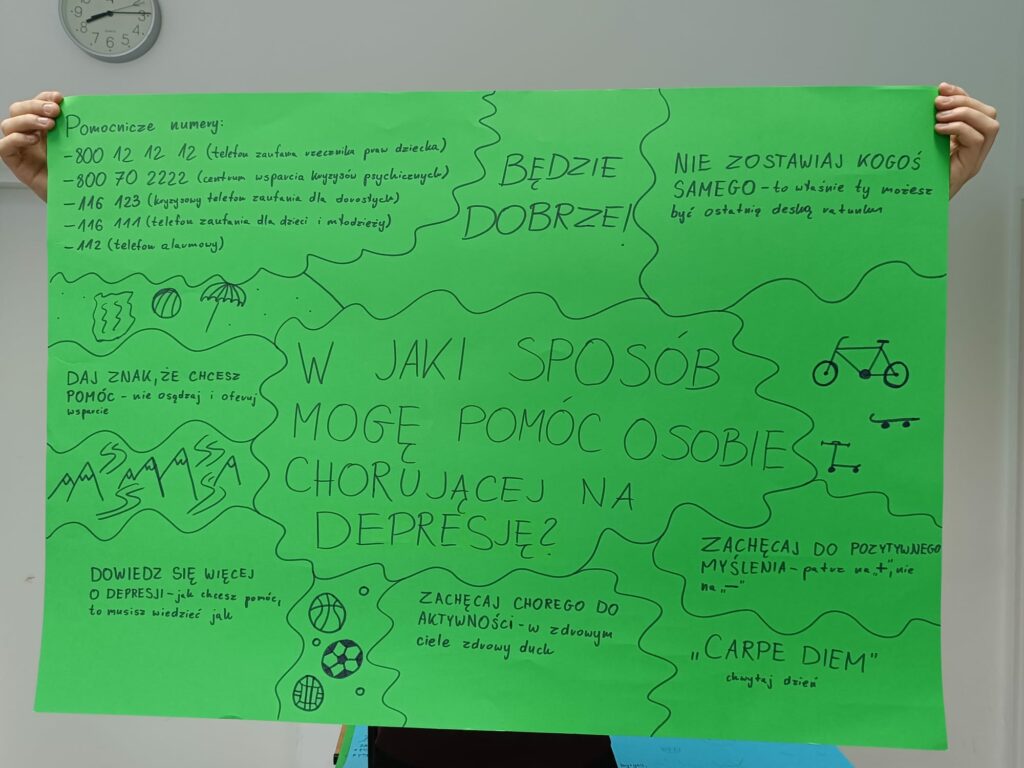 Pomocnicze numery:
-800 12 12 12 (telefon zaufania rzecznika praw dziecka)
-800 70 2222 (centrum wsparcia kryzysów psychicznych)
-116 123 (kryzysowy telefon zaufania dla dorosłych)
-116 111 (telefon zaufania dla dzieci i młodzieży)
-112 (telefon alarmowy)
BĘDZIE
DOBRZE!
NIE ZOSTAWIAJ KOGOŚ
SAMEGO - to właśnie ty możesz
być ostatnią deską ratunku
W JAKI SPOSÓB
MOGĘ POMÓC OSOBIE
CHORUJĄCEJ NA
DEPRESJĘ?
DAJ ZNAK, ŻE CHCESZ
POMÓC - nie osądzaj i oferuj
wsparcie
DOWIEDZ SIĘ WIĘCEJ
O DEPRESJI - jak chcesz pomóc,
to musisz wiedzieć jak
ZACHĘCAJ CHOREGO DO
AKTYWNOŚCI - w zdrowym
ciele zdrowy duch
ZACHĘCAJ DO POZYTYWNEGO
MYŚLENIA - patrz na „+", nie
na „-"
„CARPE DIEM"
chwytaj dzień